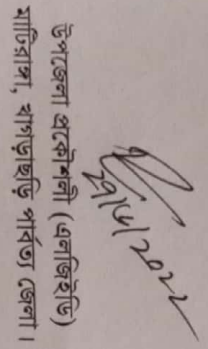 ২৯/৬/২০২২
উপজেলা প্রকৌশলী (এলজিইডি)
মাটিরাঙ্গা, খাগড়াছড়ি পার্বত্য জেলা।